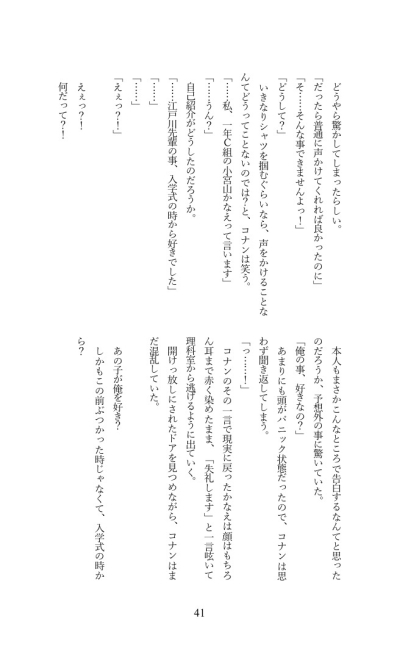 どうやら驚かしてしまったらしい。
「だったら普通に声かけてくれれば良かったのに」
「そ……そんな事できませんよっ！」
「どうして？」
いきなりシャツを掴むぐらいなら、声をかけることな
んてどうってことないのでは？と、コナンは笑う。
「……私、一年Ｃ組の小宮山かなえって言います」
「……うん？」
自己紹介がどうしたのだろうか。
「……江戸川先輩の事、入学式の時から好きでした」
「……」
「……」
「えぇっ？！」
えぇっ？！
何だって？！
本人もまさかこんなところで告白するなんてと思った
のだろうか、予想外の事に驚いていた。
「俺の事、好きなの？」
あまりにも頭がパニック状態だったので、コナンは思
わず聞き返してしまう。
「っ……！」
コナンのその一言で現実に戻ったかなえは顔はもちろ
ん耳まで赤く染めたまま、「失礼します」と一言呟いて
理科室から逃げるように出ていく。
開けっ放しにされたドアを見つめながら、コナンはま
だ混乱していた。
あの子が俺を好き？
しかもこの前ぶつかった時じゃなくて、入学式の時か
ら？
41